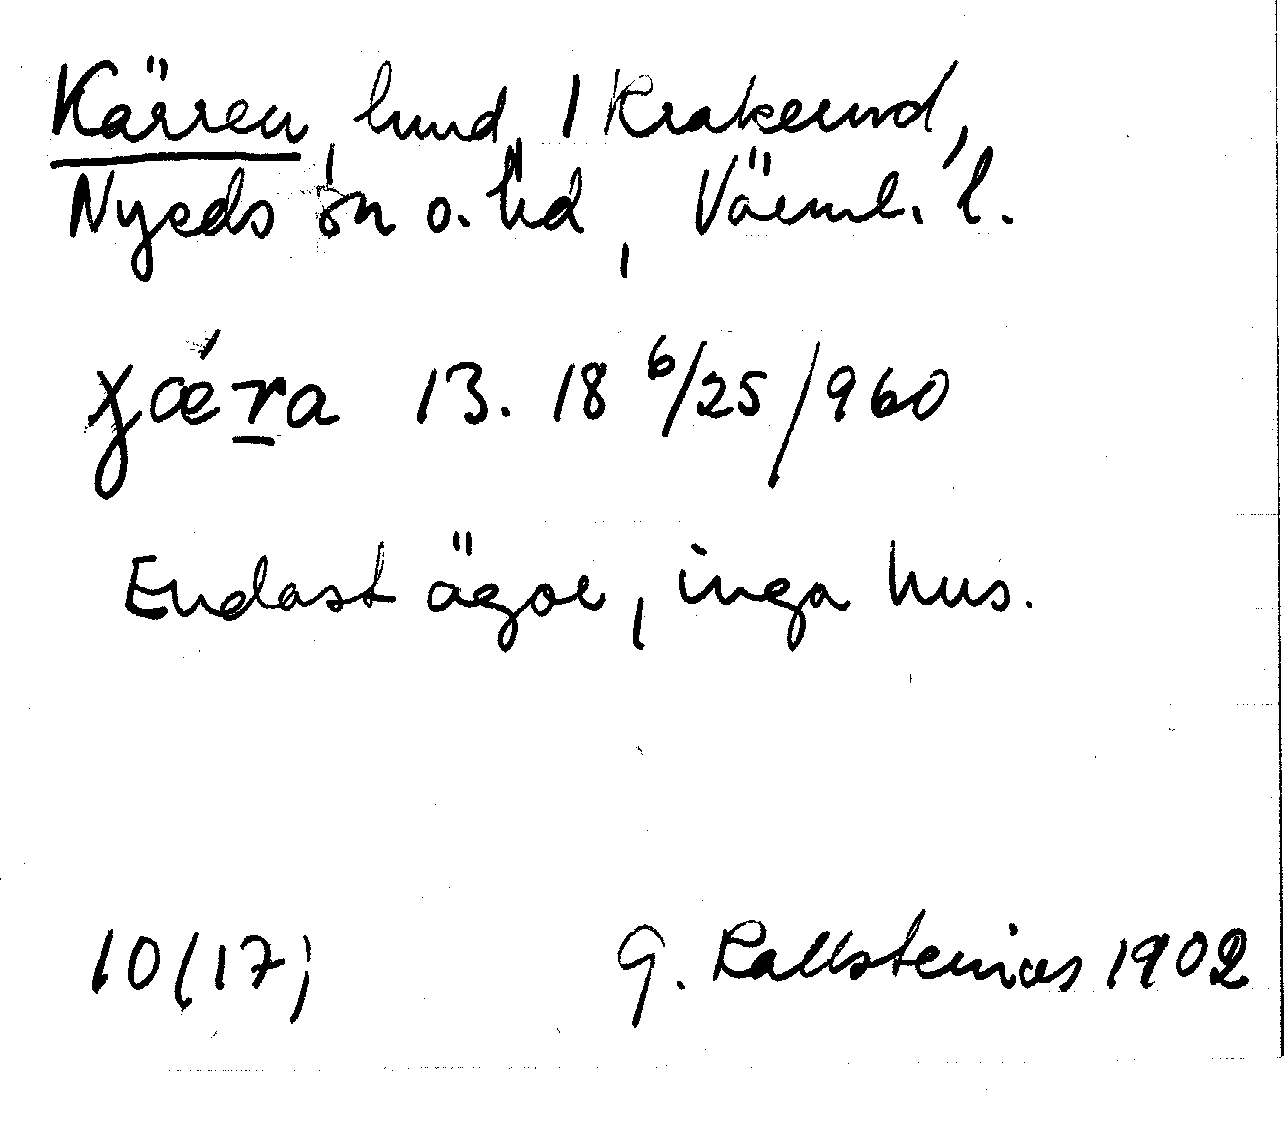 Kärren, hmd, 1 Krakerud,
Nyeds sn o. hd, Värml. l.
ɟǽra 13. 18 6/25/960
Endast ägor, inga hus.
10(17) G. Kallstenius 1902